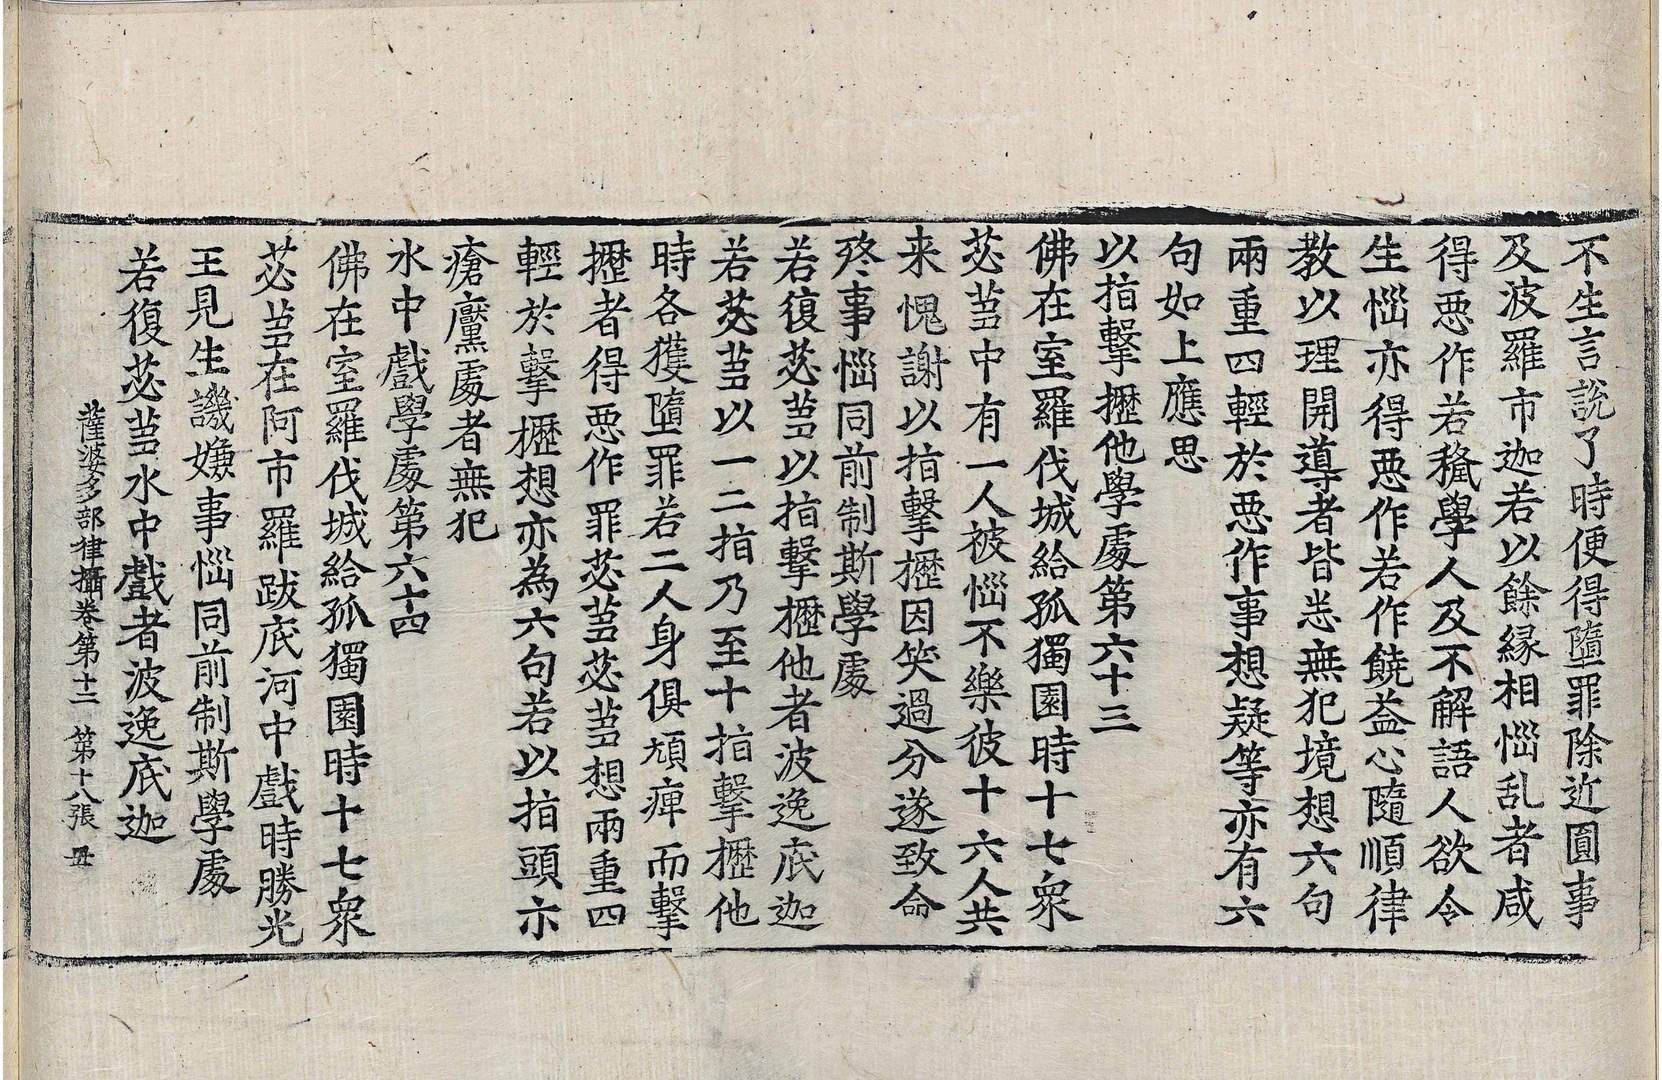 不生言說了時便得墮罪除近圓事
及波羅市迦若以餘緣相惱乱者咸
得惡作若癡學人及不解語人欲令
生惱亦得惡作若作饒益心隨順律
教以理開導者皆恙無犯境想六句
兩重四輕於惡作事想疑等亦有六
句如上應思
以指擊攊他學處第六十三
佛在室羅伐城給孤獨園時十七衆
苾芻中有一人被惱不樂彼十六人共
来愧謝以指擊攊因笑過分遂致命
終事惱同前制斯學處
若復苾芻以指擊攊他者波逸底迦
若苾芻以一二指乃至十指擊攊他
時各獲墮罪若二人身俱頑痺而擊
攊者得惡作罪苾芻苾芻想兩重四
輕於擊攊想亦為六句若以指頭示
瘡黶處者無犯
水中戲學處第六十四
佛在室羅伐城給孤獨園時十七衆
苾芻在阿市羅跋底河中戲時勝光
王見生譏嫌事惱同前制斯學處
若復苾芻水中戲者波逸底迦
薩婆多部律攝卷第十二 第十八張 毌